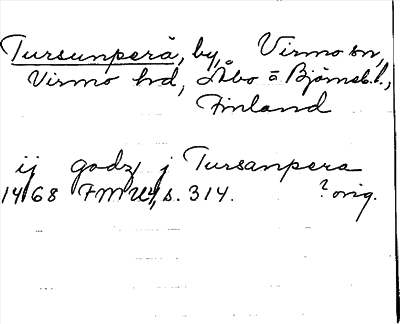 Tursunperä, by, Virmo sn,
Virmo hd, Åbo o Björneb. l.,
Finland
ij godz j Tursanpera
1468 FMU4, s. 314. ? orig.